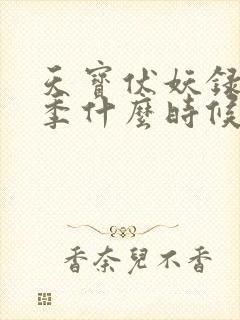 天寶伏妖錄
季什麼時候
香奈兒不香